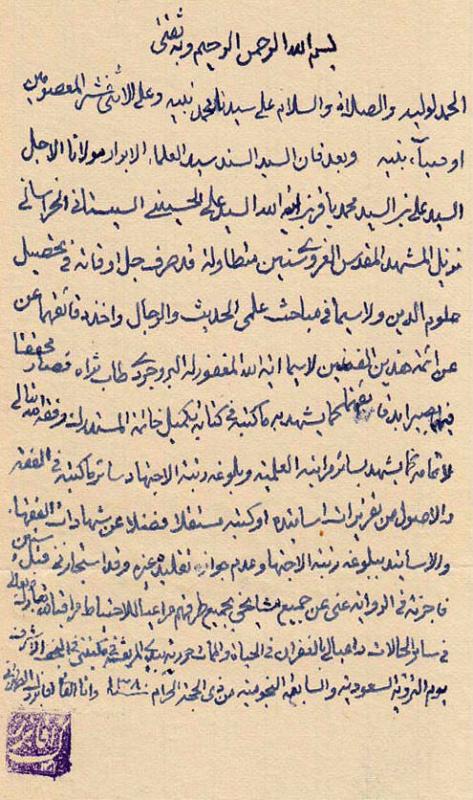 بسم الله الرحمن الرحيم وبه ثقتي
الحمد لوليه والصلاة والسلام على سيدنا محمد نبيه وعلى الاثنى عشر المعصومين
اوصياء نبيه وبعد فان السيد السند سيد العلماء الابرار مولانا الاجل
السيد على بن السيد محمد باقر بن اية الله السيد على الحسيني السيستاني الخراساني
نزيل المشهد المقدس الغروي سنين متطاولة قد صرف جل اوقاته في تحصيل
علوم الدين ولا سيما في مباحث علمي الحديث والرجال واخذ دقائقهما عن
عن ائمة هذين الفنين لا سيما اية الله المغفور له البروجردي طاب ثراه فصار محققا
فيهما بصيرا بدقائقهما كما يشهد به ما كتبه في كتابه تكميل خاتمة المستدرك وفقه الله تعالى
لاتمامه كما يشهد بسائر مراتبه العلمية وبلوغه رتبة الاجتهاد سائر ما كتبه في الفقه
والاصول من تقريرات اساتيده او كتبه مستقلا فضلا عن شهادات الفقهاء
والاساتيد ببلوغه رتبة الاجتهاد وعدم جواز تقليده غيره وقد استجازني قبل سنين
فاجزته في الرواية عني عن جميع مشايخي بجميع طرقهم مراعيا للاحتياط مراقبا لله تعالى
في سائر الحالات داعيا لي الغفران في الحياة والممات حررته بيدي المرتعشة في مكتبتي في النجف الاشرف
يوم التروية السعودية والسابع النجومية من ذي الحجة الحرام ١٣٨٠ وانا الفاني